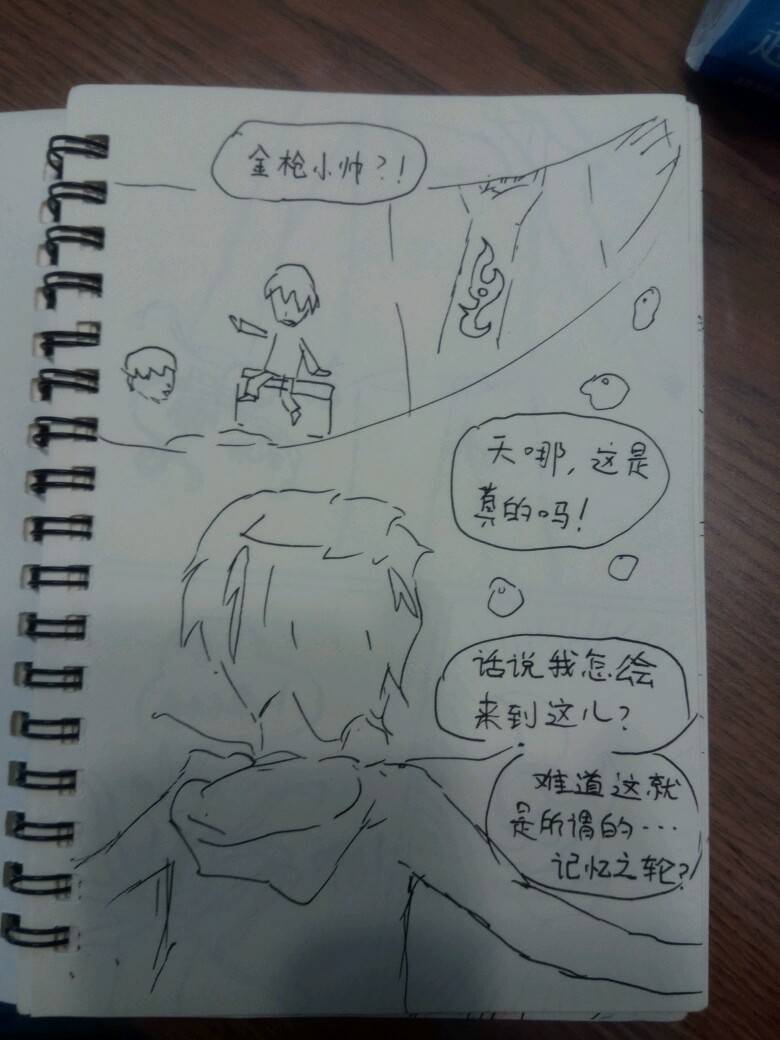 金枪小帅?!
天哪,这是
真的吗!
话说我怎会
来到这儿?
难道这就
是所谓的…
记忆之轮?